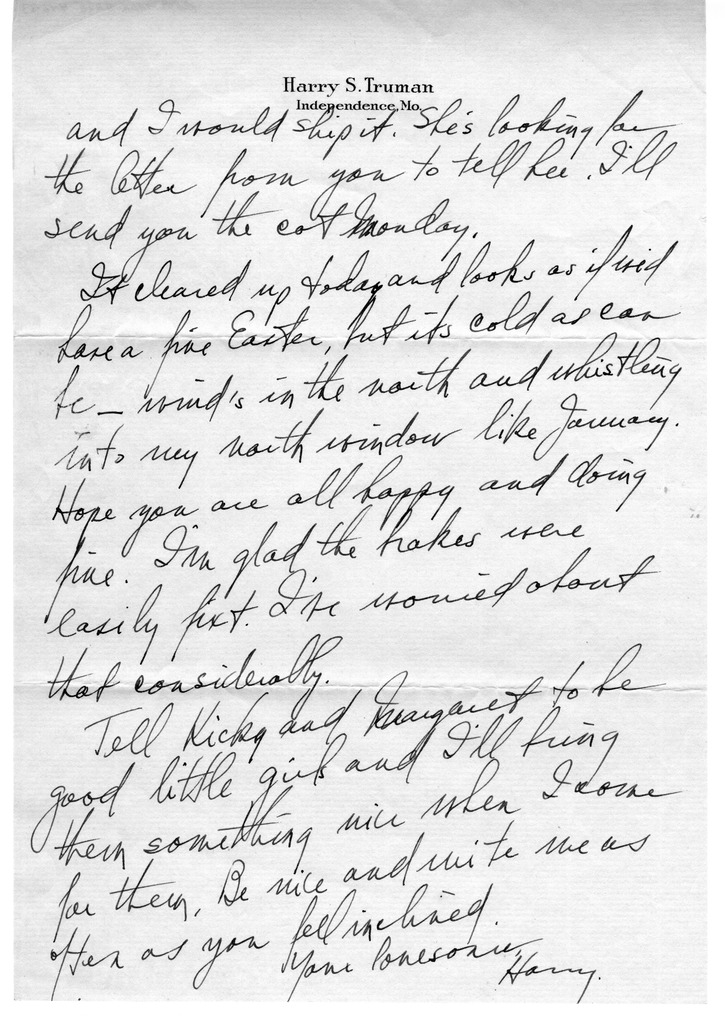 Harry S. Truman
Independence, Mo.
and I would ship it. She's looking for
the letter from you to tell her. I'll
send you the cot Monday.
It cleared up today and looks as if we'd
have a fine Easter, but its cold as can
be — wind's in the north and whistling
into my north window like January.
Hope you are all happy and doing
fine. I'm glad the brakes were
easily fixt. I've worried about
that considerably.
Tell Kicky and Margaret to be
good little girls and I'll bring
them something nice when I come
for them. Be nice and write me as
often as you feel inclined.
Your lonesome,
Harry.